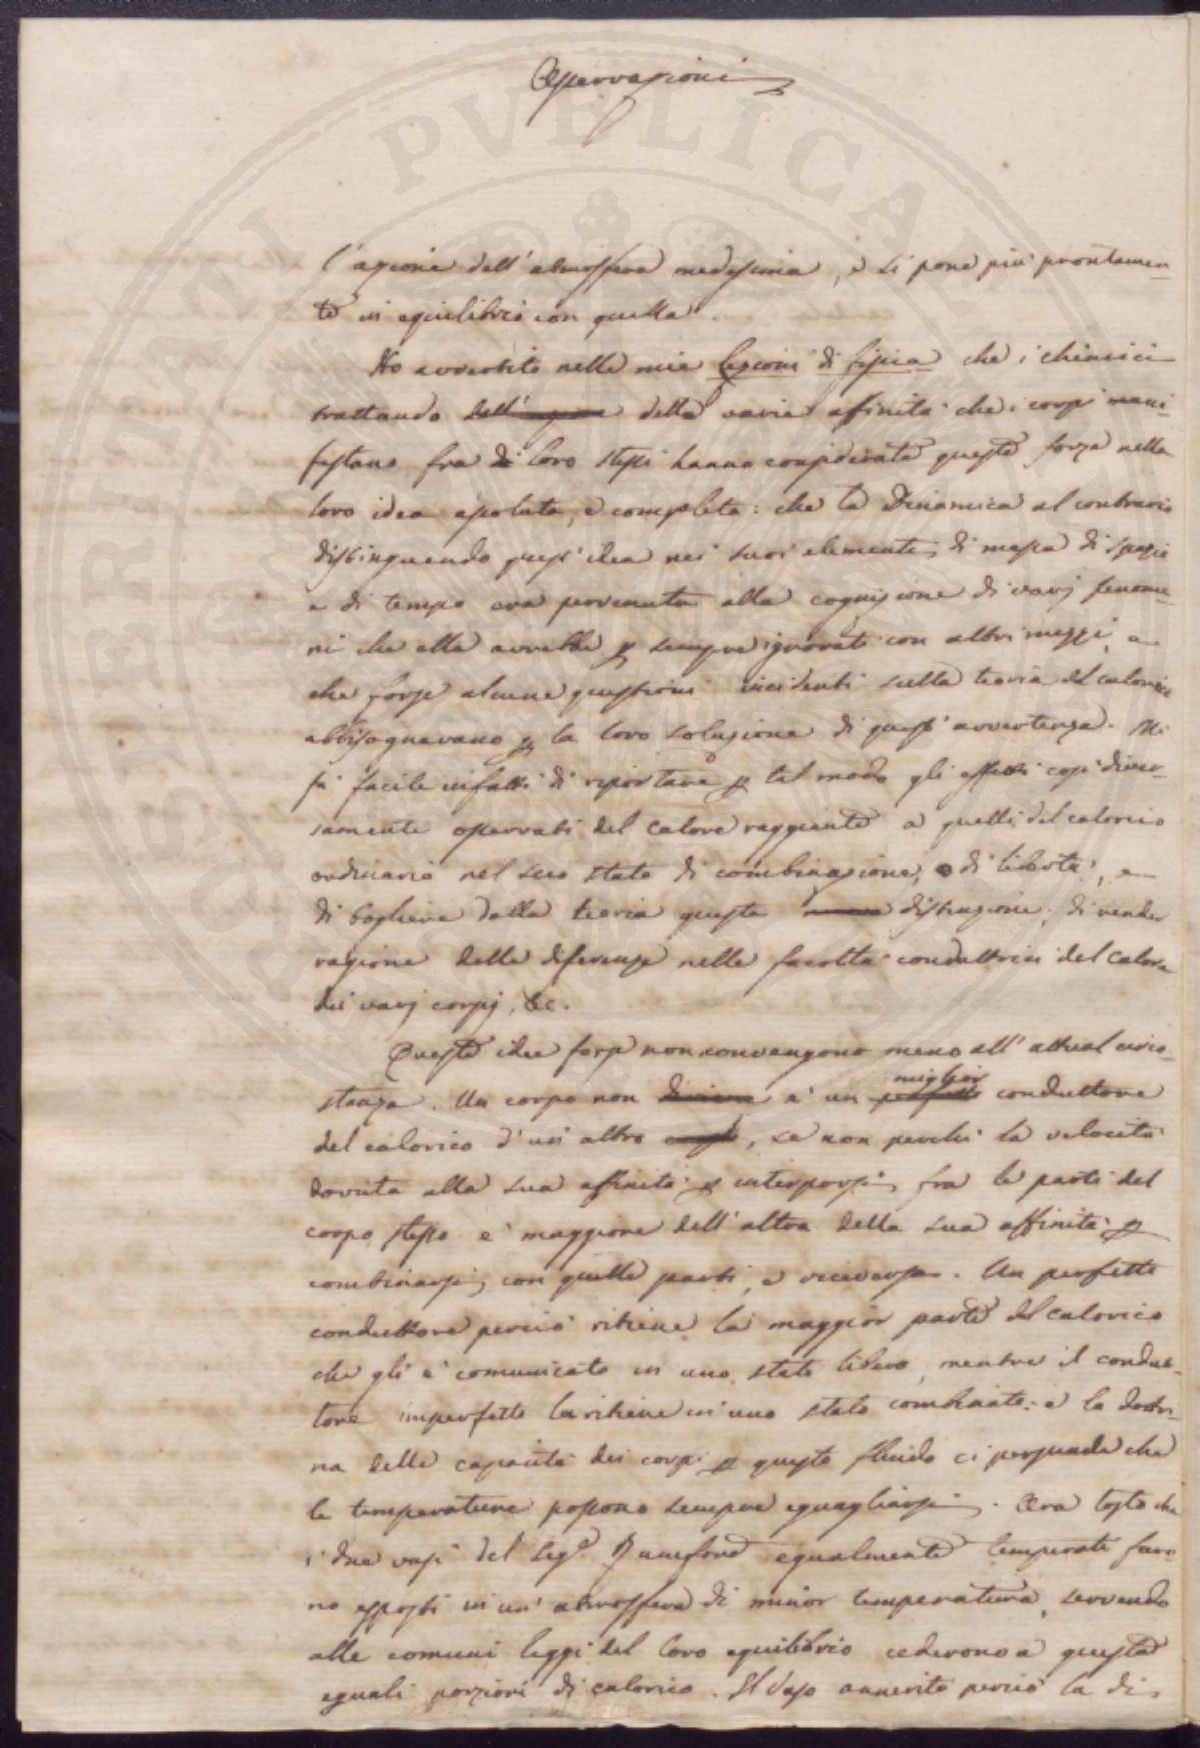 Osservazioni
l'azione dell'atmosfera medesima, e si pone più prontamen-
te in equilibrio con quella.
Ho avvertito nelle mie lezioni di fisica che i chimici
trattando dell'azione della varia affinità che i corpi mani-
festano fra di loro stessi hanno considerata questa forza nella
loro idea assoluta, e completa: che la Dinamica al contrario
distinguendo quest'idea nei suoi elementi di massa di spazio
e di tempo era pervenuta alla cognizione di varj fenome-
ni che ella avrebbe p sempre ignorati con altri mezzi, e
che forse alcune questioni incidenti sulla teoria del calorico
abbisognavano p la loro soluzione di quest'avvertenza. Mi
fù facile infatti di riportare p tal modo gli effetti così diver-
samente osservati del calore raggiante a quelli del calorico
ordinario nel suo stato di combinazione, e di libertà, e
di togliere dalla teoria questa distinzione; di render
ragione delle diferenze nelle facoltà conduttrici del calore
dei varj corpi, &c.
Queste idee forse non convengono meno all'attual circo-
stanza. Un corpo non è un miglior conduttore
del calorico d'un'altro, se non perchè la velocità
dovuta alla sua affinità p interporsi fra le parti del
corpo stesso è maggiore dell'altra della sua affinità p
combinarsi con quelle parti, e viceversa. Un perfetto
conduttore perciò ritiene la maggior parte del calorico
che gli è comunicato in uno stato libero, mentre il condut-
tore imperfetto la ritiene in uno stato combinato: e la dottri-
na delle capacità dei corpi p questo fluido ci persuade che
le temperature possono sempre eguagliarsi. Ora tosto che
i due vasi del Seg. Rumford egualmente temperati furo
no esposti in un'atmosfera di minor temperatura, servendo
alle comuni leggi del loro equilibrio cederono a questa
eguali porzioni di calorico. Il vaso annerito perciò la di